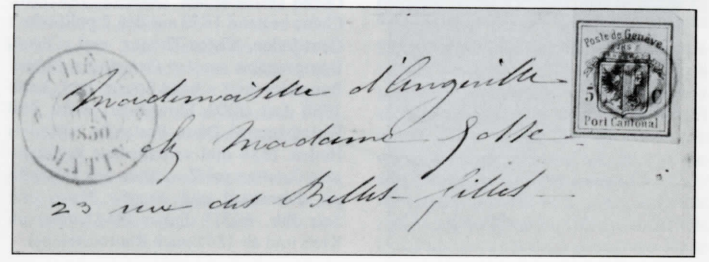 CHÊNE
1850
MATIN
Poste de Genève
5 C
Port Cantonal
Mademoiselle d'Angeville
chez Madame Gosse
23 rue des Belles-filles